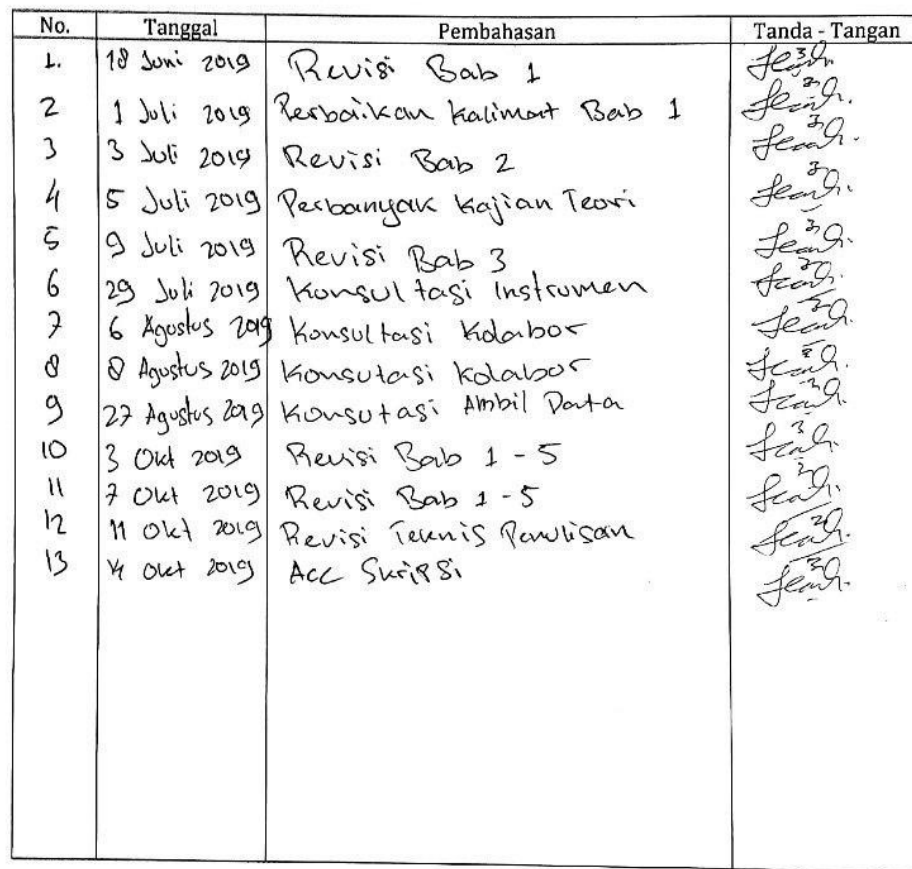 No. Tanggal Pembahasan Tanda - Tangan
1. 18 Juni 2019 Revisi Bab 1
2 1 Juli 2019 Perbaikan Kalimat Bab 1
3 3 Juli 2019 Revisi Bab 2
4 5 Juli 2019 Perbanyak Kajian Teori
5 9 Juli 2019 Revisi Bab 3
6 29 Juli 2019 Konsultasi Instrumen
7 6 Agustus 2019 Konsultasi Kolabor
8 8 Agustus 2019 Konsutasi Kolabor
9 27 Agustus 2019 Konsutasi Ambil Data
10 3 Okt 2019 Revisi Bab 1 - 5
11 7 Okt 2019 Revisi Bab 1 - 5
12 11 Okt 2019 Revisi Teknis Penulisan
13 14 Okt 2019 Acc Skripsi